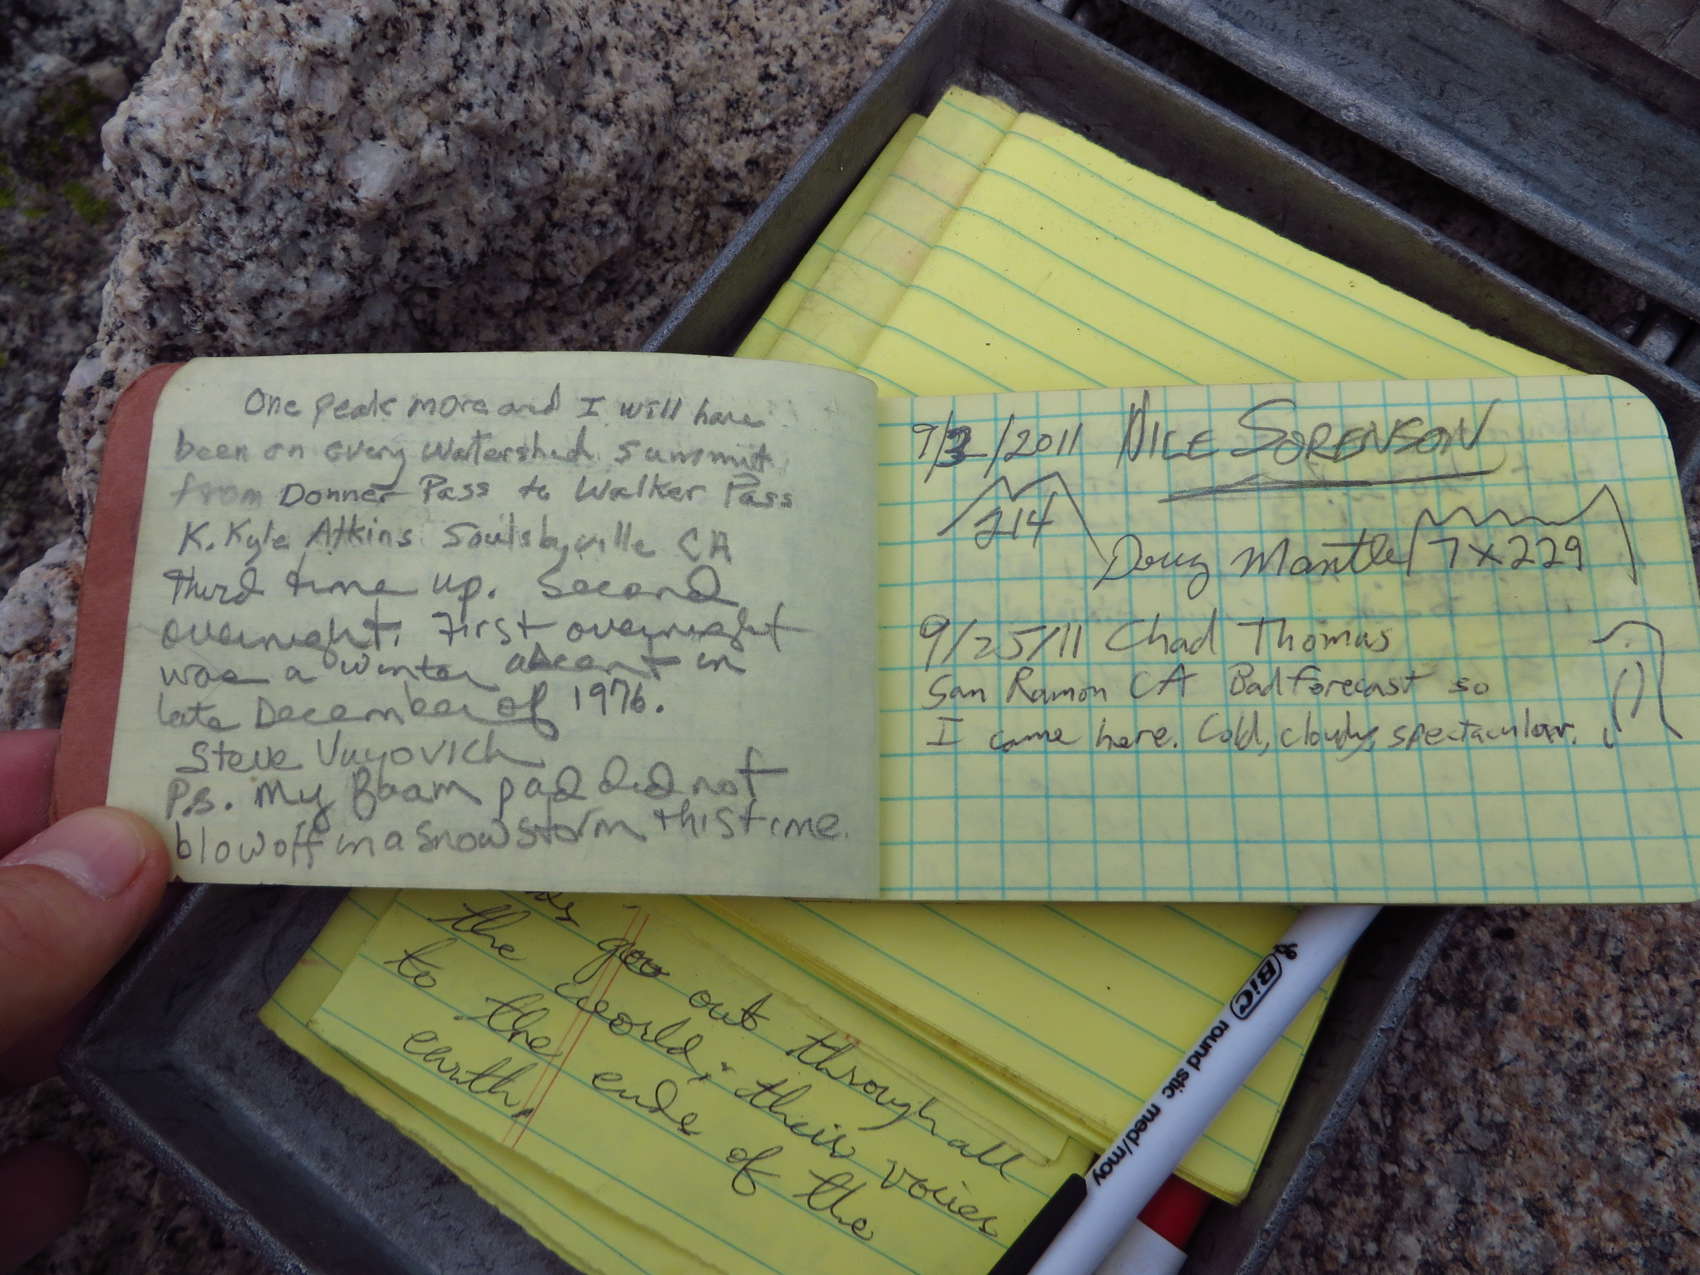 One peak more and I will have
been on every Watershed summit
from Donner Pass to Walker Pass
K. Kyle Atkins Soulsbyville CA
Third time up. Second
overnight. First overnight
was a winter ascent in
late December of 1976.
Steve Vuyovich
P.s. My foam pad did not
blow off in a snowstorm this time.
9/3/2011 NILE SORENSON
214
Doug Mantle 7x229
9/25/11 Chad Thomas
San Ramon CA Bad forecast so
I came here. Cold, cloudy, spectacular.
go out through all
the world, + their voices
to the ends of the
earth.
BIC round stic med/moy